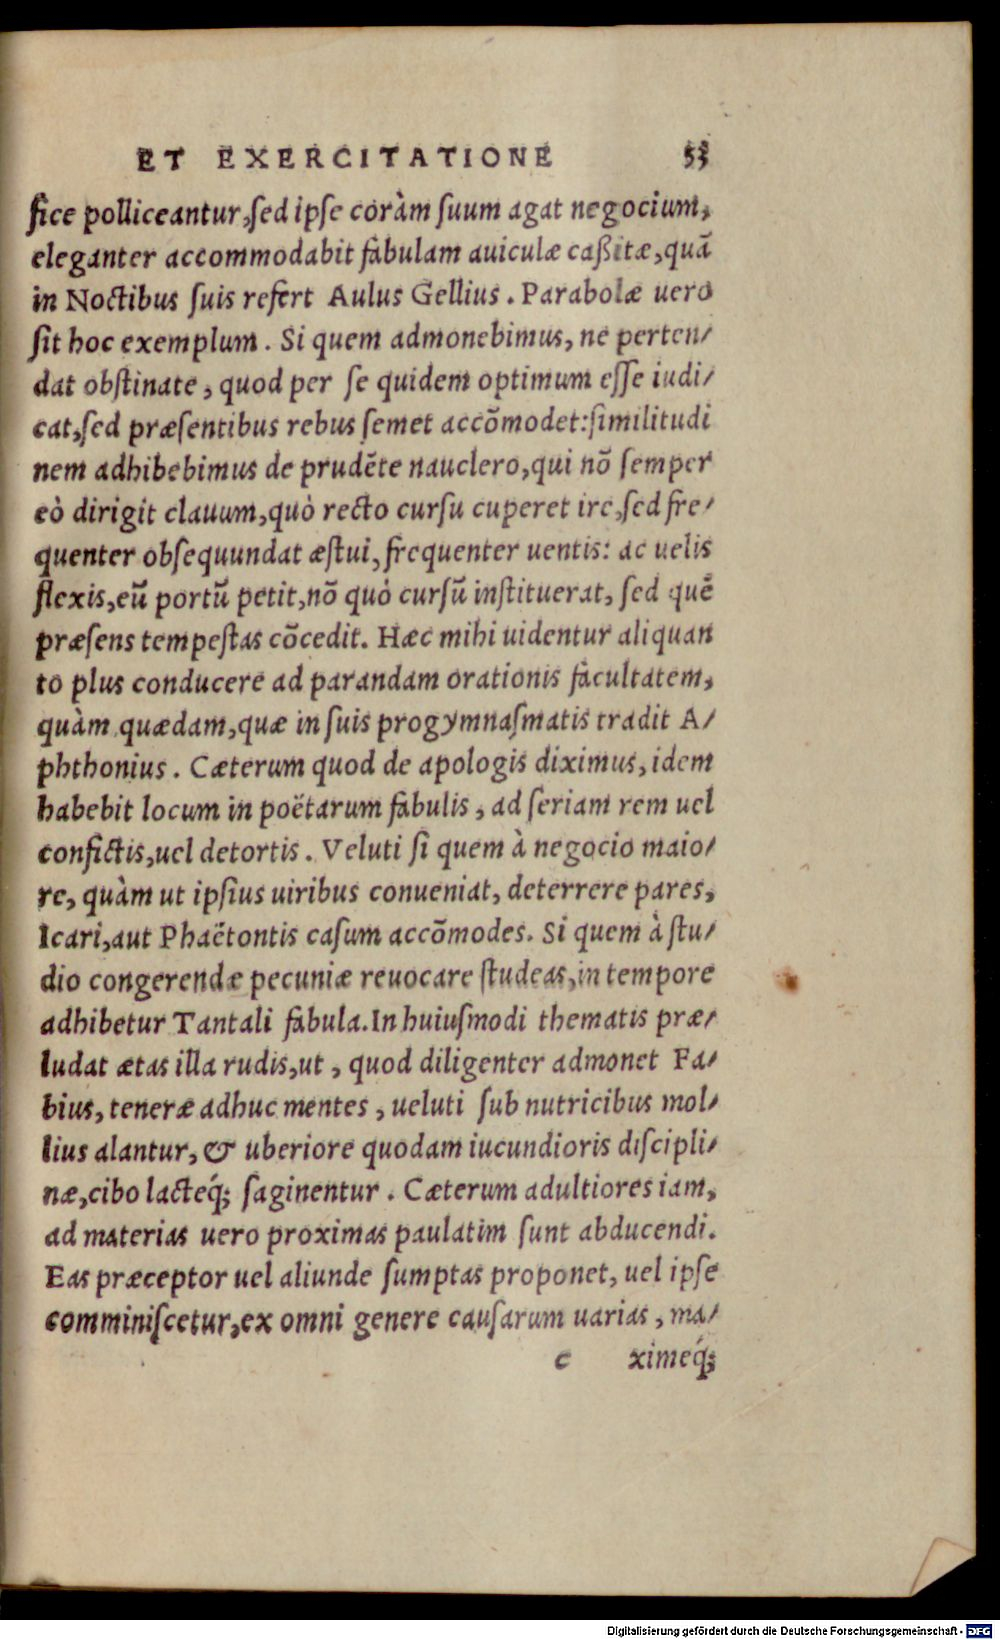 ET EXERCITATIONE 53
fice polliceantur,ſed ipſe coràm ſuum agat negocium,
eleganter accommodabit fabulam auiculæ caßitæ,quā
in Noctibus ſuis refert Aulus Gellius. Parabolæ uero
ſit hoc exemplum. Si quem admonebimus, ne perten/
dat obſtinate, quod per ſe quidem optimum eſſe iudi/
cat,ſed præſentibus rebus ſemet accōmodet:ſimilitudi
nem adhibebimus de prudēte nauclero,qui nō ſemper
eò dirigit clauum,quò recto curſu cuperet ire,ſed fre/
quenter obſequundat æſtui, frequenter uentis: ac uelis
flexis,eū portū petit,nō quò curſū inſtituerat, ſed quē
præſens tempeſtas cōcedit. Hæc mihi uidentur aliquan
to plus conducere ad parandam orationis facultatem,
quàm quædam,quæ in ſuis progymnaſmatis tradit A/
phthonius. Cæterum quod de apologis diximus, idem
habebit locum in poëtarum fabulis, ad ſeriam rem uel
confictis,uel detortis. Veluti ſi quem à negocio maio/
re, quàm ut ipſius uiribus conueniat, deterrere pares,
Icari,aut Phaëtontis caſum accōmodes. Si quem à ſtu/
dio congerendæ pecuniæ reuocare ſtudeas,in tempore
adhibetur Tantali fabula.In huiuſmodi thematis præ/
ludat ætas illa rudis,ut, quod diligenter admonet Fa/
bius, teneræ adhuc mentes, ueluti ſub nutricibus mol/
lius alantur, & uberiore quodam iucundioris diſcipli/
næ,cibo lacteq́; ſaginentur. Cæterum adultiores iam,
ad materias uero proximas paulatim ſunt abducendi.
Eas præceptor uel aliunde ſumptas proponet, uel ipſe
comminiſcetur,ex omni genere cauſarum uarias, ma/
c ximeq́;
Digitalisierung gefördert durch die Deutsche Forschungsgemeinschaft - DFG